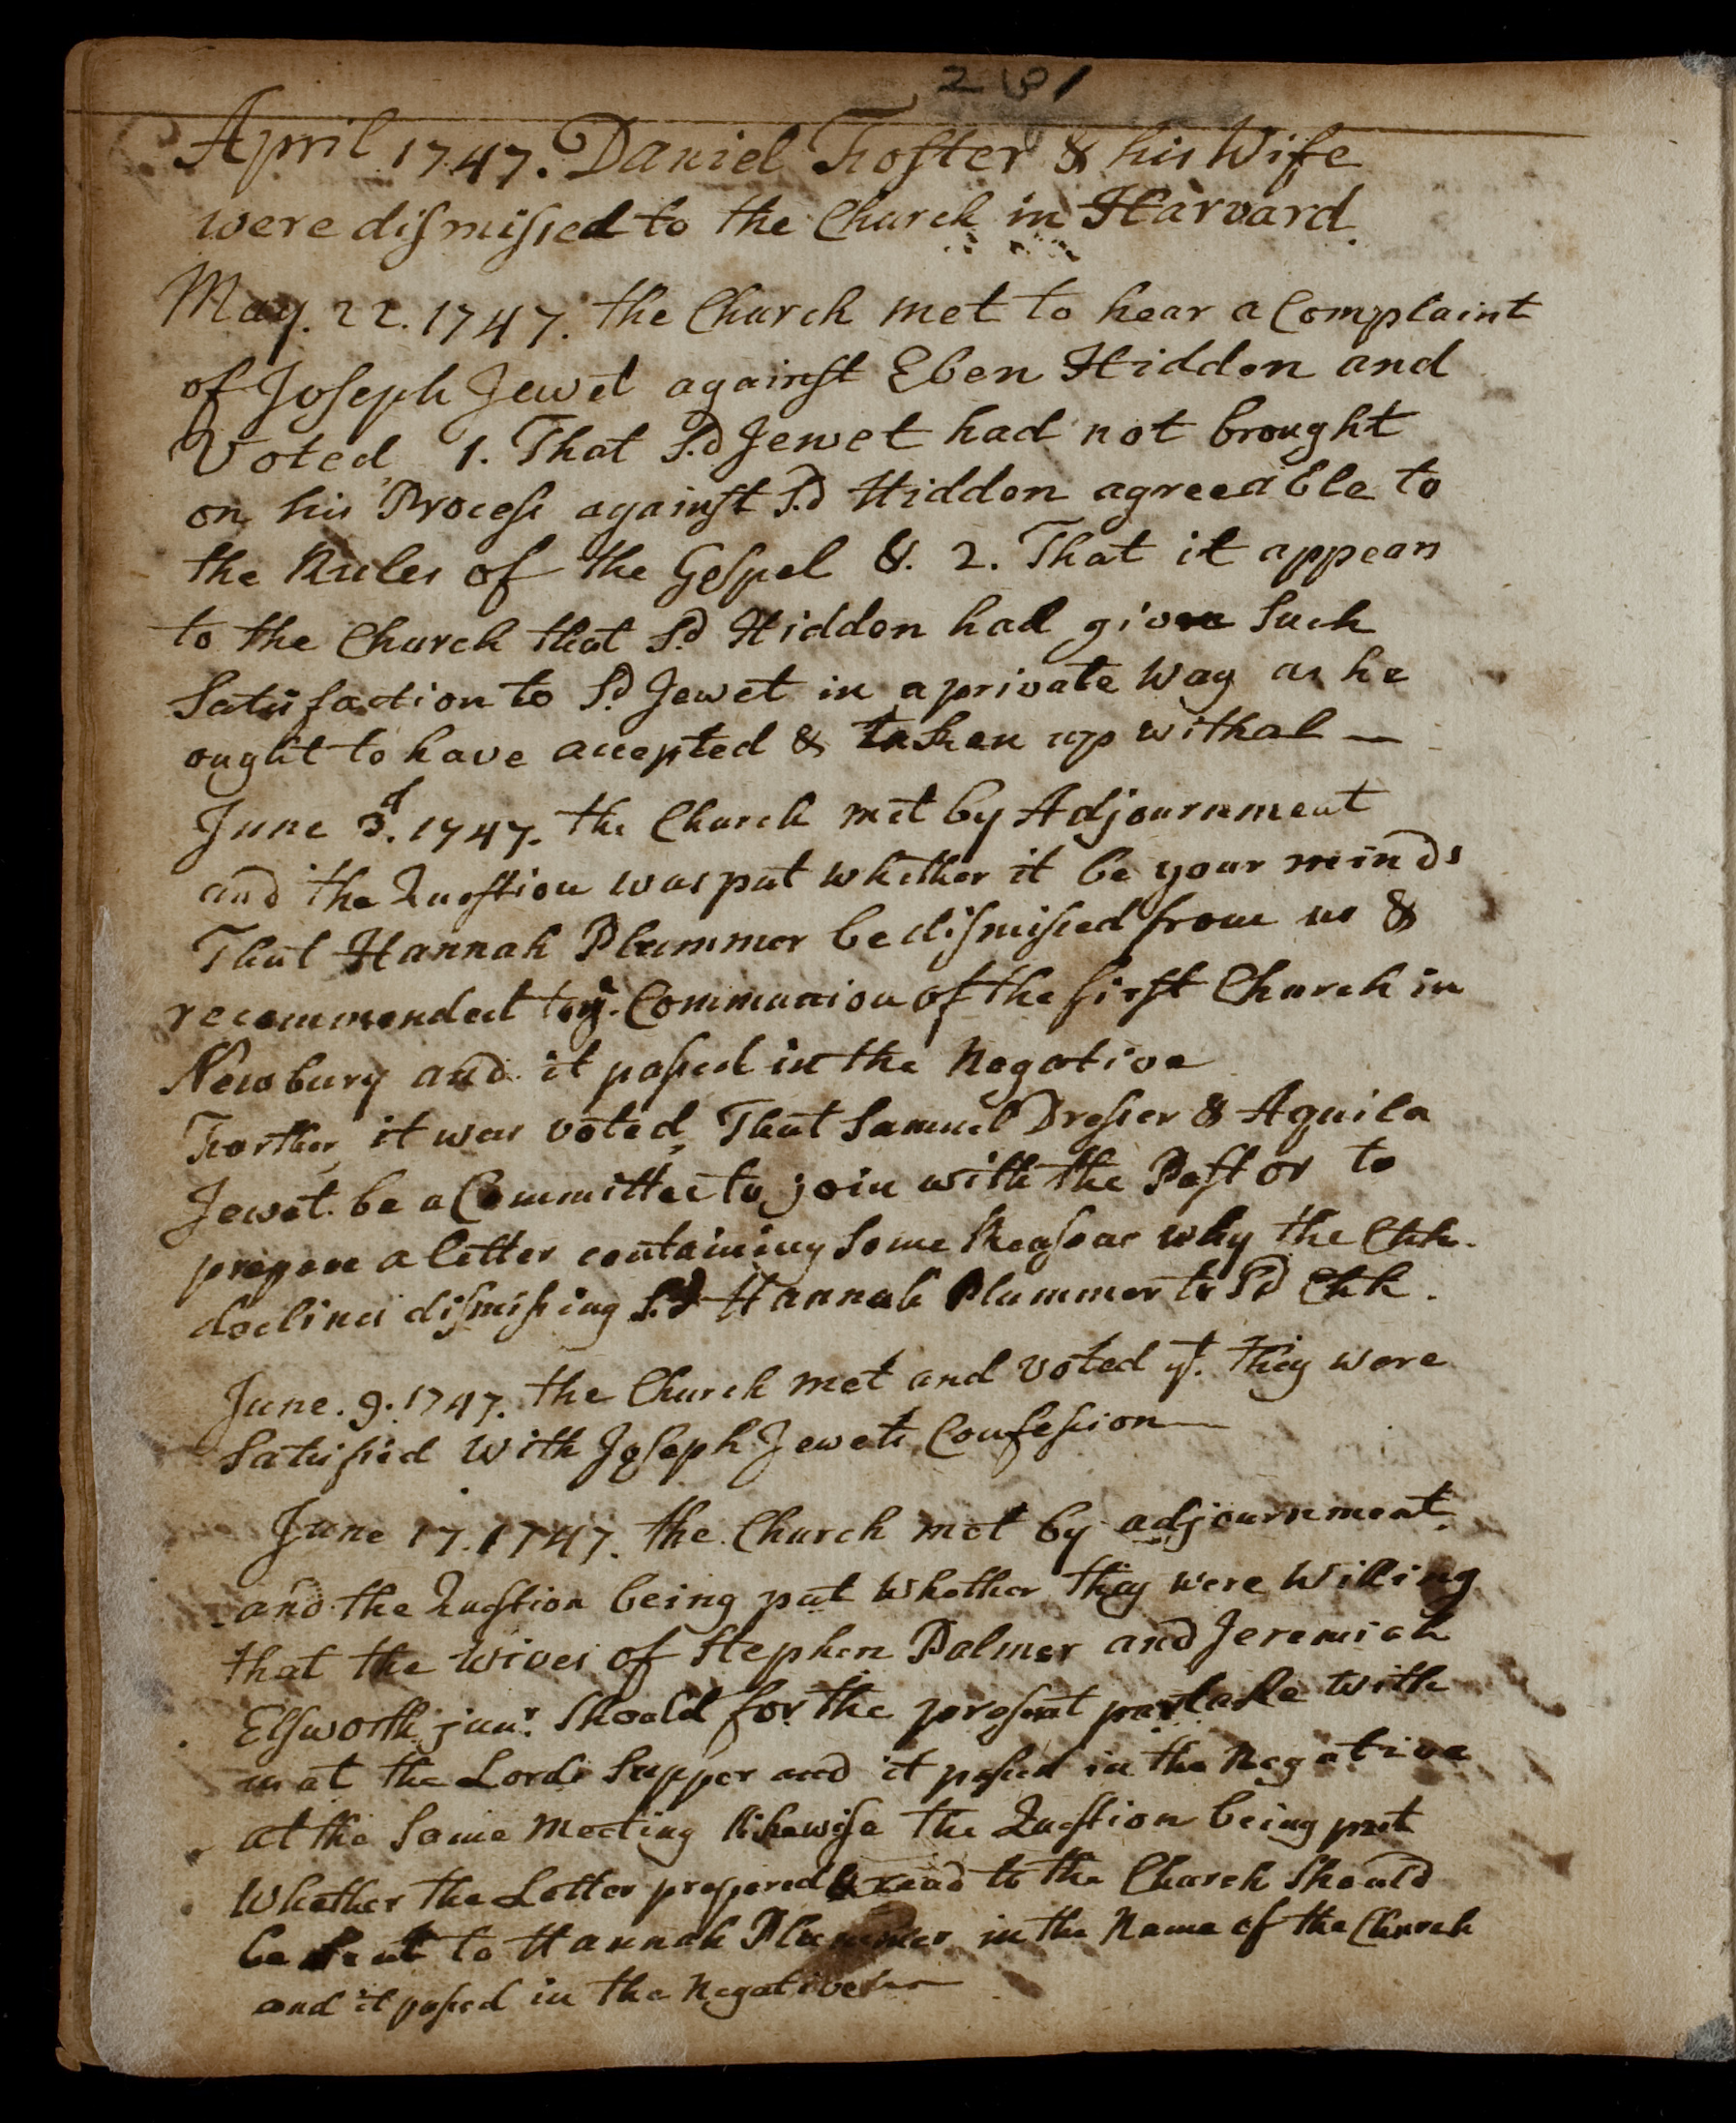 April 1747. Daniel Foster & his Wife
were dismissed to the Church in Harvard.
May. 22. 1747. the Church met to hear a Complaint
of Joseph Jewet against Eben Hidden and
Voted, 1. That Sd. Jewet had not brought
on his Process against Sd. Hidden agreeable to
the Rules of the Gospel &. 2. That it appears
to the Church that Sd. Hidden had given Such
Satisfaction to Sd. Jewet in a private Way as he
ought to have accepted & taken up withal —
June 3d. 1747. the Church met by Adjournment
and the Question was put whether it be your minds
That Hannah Plummer be dismissed from us &
recommended to ye. Communion of the first Church in
Newbury and it passed in the Negative
Further it was voted, That Samuel Dresser & Aquila
Jewet be a Committee to join with the Pastor to
prepare a letter containing Some Reasons why the Chh.
declines dismissing Sd. Hannah Plummer to Sd Chh.
June. 9. 1747. the Church met and voted yt. they were
Satisfied with Joseph Jewets Confession —
June 17. 1747. the Church met by adjournment.
and the Question being put Whether they were Willing
that the Wives of Stephen Palmer and Jeremiah
Elsworth junr. Should for the present partake with
us at the Lords Supper and it passed in the Negative
at the Same Meeting likewise the Question being put
Whether the Letter prepared & read to the Church Should
be Sent to Hannah Plummer in the Name of the Church
and it passed in the Negative —